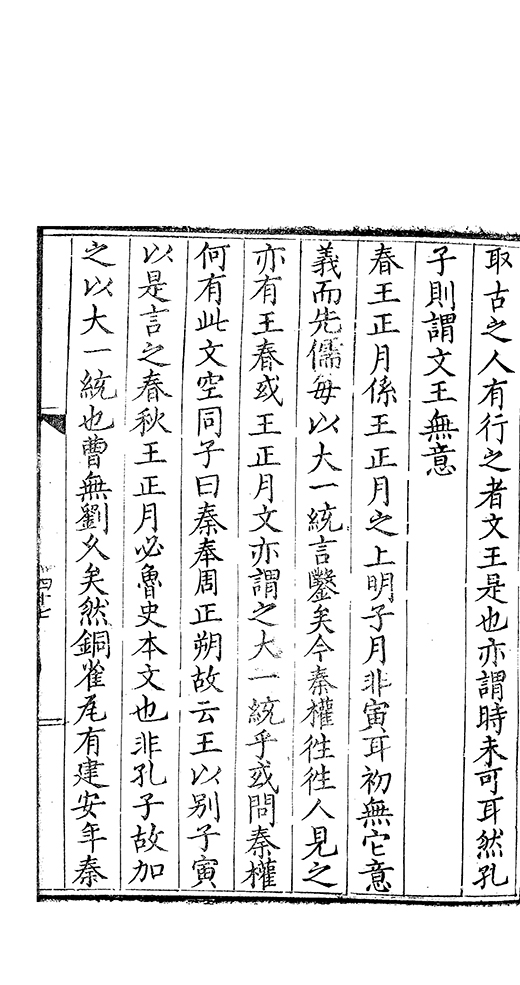 取古之人有行之者文王是也亦謂時未可耳然孔
子則謂文王無意
春王正月係王正月之上明子月非寅耳初無它意
義而先儒每以大一統言鑿矣今秦權徃徃人見之
亦有王春或王正月文亦謂之大一統乎或問秦權
何有此文空同子曰秦奉周正朔故云王以别子寅
以是言之春秋王正月必魯史本文也非孔子故加
之以大一統也曹無劉久矣然銅雀瓦有建安年秦
四十七